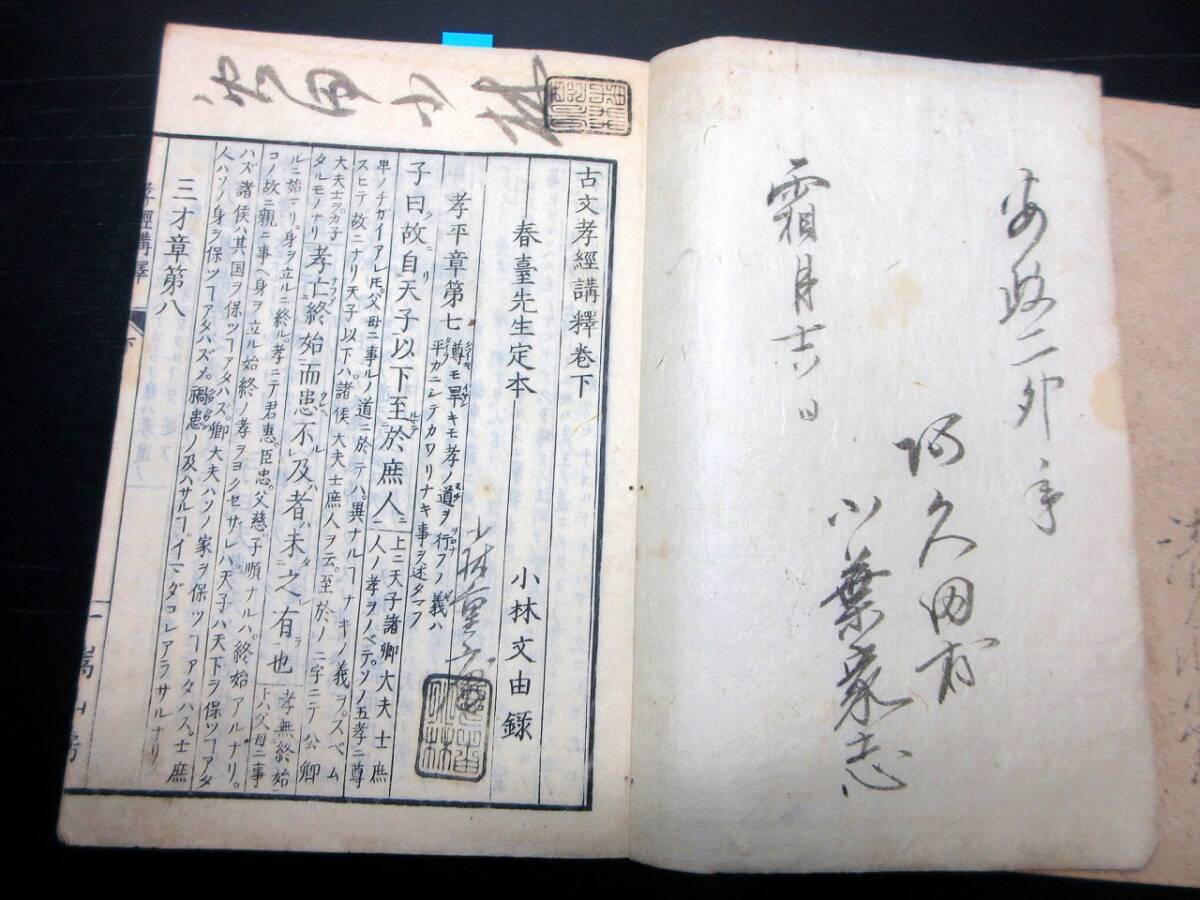 安政二卯年
霜月十六日
阿久田村
小葉家志
小林
古文孝經講釋巻下
春臺先生定本 小林文由錄
孝平章第七 尊キモ卑キモ孝ノ道ヲ行フノ義ハ平カニシテカワリナキ事ヲ述タマフ
子曰故自天子以下至於庶人 上ニ天子諸卿大夫士庶人ノ孝ヲノベテソノ五孝ニ尊
卑ノチガイアレ𪜈父母ニ事ルノ道ニ於テハ異ナルヿナキノ義ヲスベム
スヒテ故ニナリ天子以下ハ諸侯大夫士庶人ヲ云至於ノ二字ニテ公卿
大夫士ヲカ子タルモノナリ 孝亡終始而患不及者未之有也 孝無終始
トハ父母ニ事ルニ始マリ身ヲ立ルニ終ル孝ニテ君惠臣忠父慈子順ナルハ終始アルナリ
コノ故ニ親ニ事ヘ身ヲ立ル始終ノ孝ヲヨクセサレハ天子ハ天下ヲ保ツヿアタ
ハズ諸侯ハ其国ヲ保ツヿアタハズ卿大夫ハソノ家ヲ保ツヿアタハス士庶
人ハソノ身ヲ保ツヿアタハズ禍患ノ及ハサルヿイマダコレアラサルナリ
三才章第八
孝經講釋
下
一